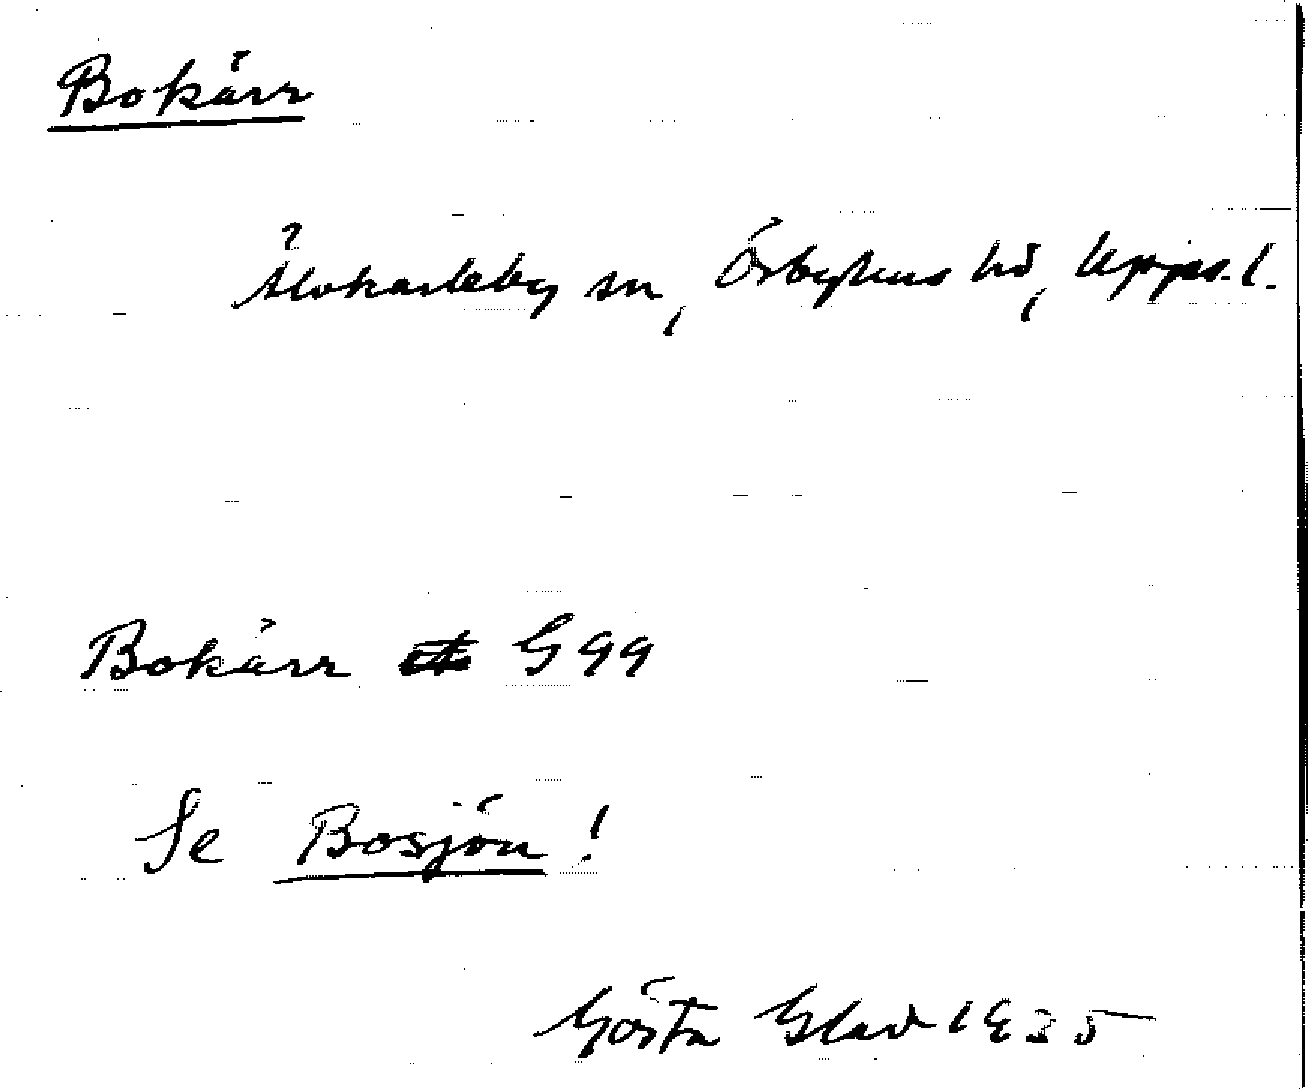 Bokärr
Älvkarleby sn, Örbyhus hd, Upps. l.
Bokärr G 99
Se Bosjön!
Gösta Glad 1935